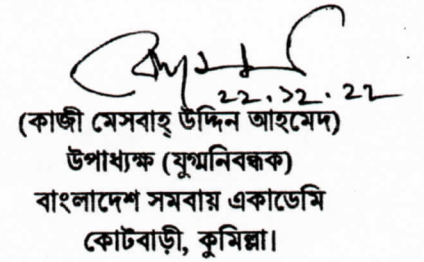 ২২.১২.২২
(কাজী মেসবাহ্ উদ্দিন আহমেদ)
উপাধ্যক্ষ (যুগ্মনিবন্ধক)
বাংলাদেশ সমবায় একাডেমি
কোটবাড়ী, কুমিল্লা।